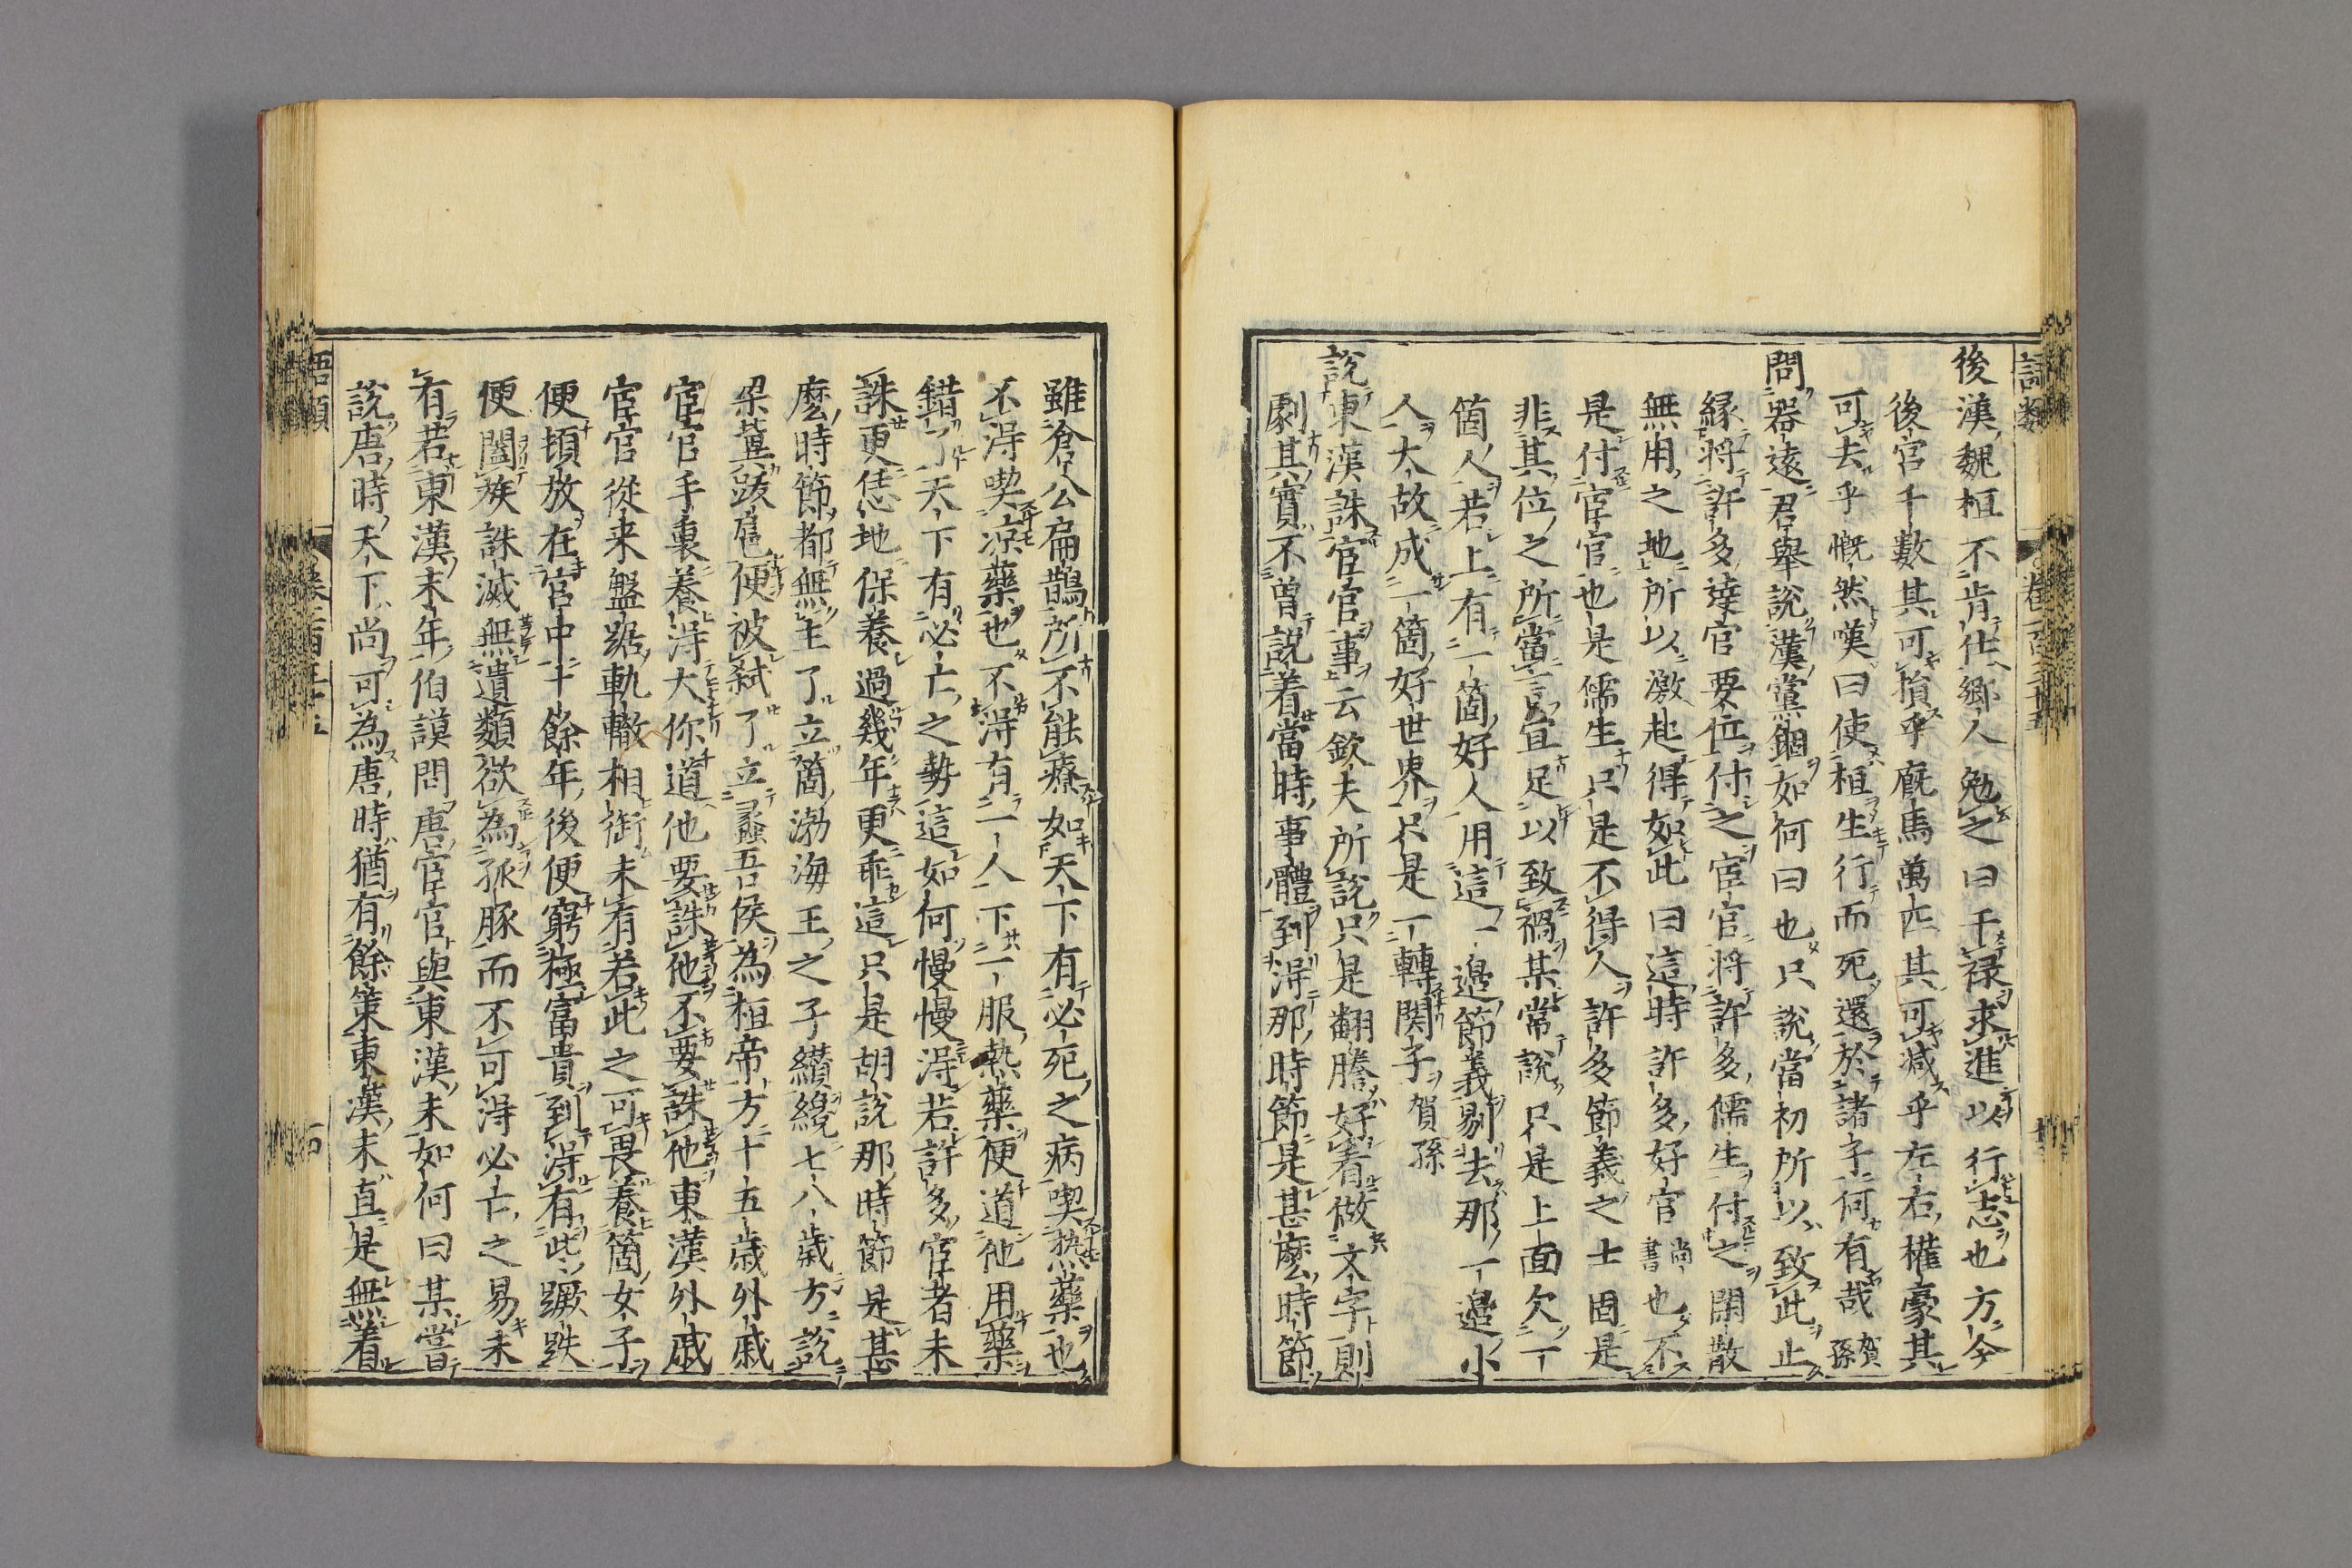 後漢魏桓不肯仕鄉人勉之曰干祿求進以行志也方今
後宮千數其可損乎廐馬萬匹其可减乎左右權豪其
可去乎慨然嘆曰使桓生行而死還於諸子何有哉賀孫
問器遠君舉說漢黨錮如何曰也只說當初所以致此止
緣將許多達官要位付之宦官將許多儒生付之閑散
無用之地所以激起得如此曰這時許多好官尚書也不
是付宦官也是儒生只是不得人許多節義之士固是
非其位之所當言宜足以致禍某常說只是上面欠一
箇人若上有一箇好人用這一邊節義剔去那一邊小
人大故成一箇好世界只是一轉関子賀孫
說東漢誅宦官事云欽夫所說只是翻謄好看做文字則
劇其實不曾說着當時事體到淂那時節是甚麼時節
雖滄公扁鵲所不能療如天下有必死之病喫热藥也
不淂喫凉藥也不淂有一人下一服熱藥便道他用藥
錯了天下有必亡之勢這如何慢慢淂若許多宦者未
誅更恁地保養過幾年更乖這只是胡說那時節是甚
麼時節都無主了立箇渤海王之子纘纔七八歲方說
梁冀跋扈便被弑了立蠡吾侯為桓帝方十五歲外戚
宦官手裏養淂大你道他要誅他不要誅他東漢外戚
宦官從来盤踞軌轍相銜未有若此之可畏養箇女子
便頓放在宮中十餘年後便窮極富貴到淂有此蹶跌
便闔族誅滅無遺類欲為孤豚而不可淂必亡之易未
有若東漢末年伯謨問唐宦官與東漢末如何曰某嘗
說唐時天下尚可為唐時猶有餘策東漢末直是無着